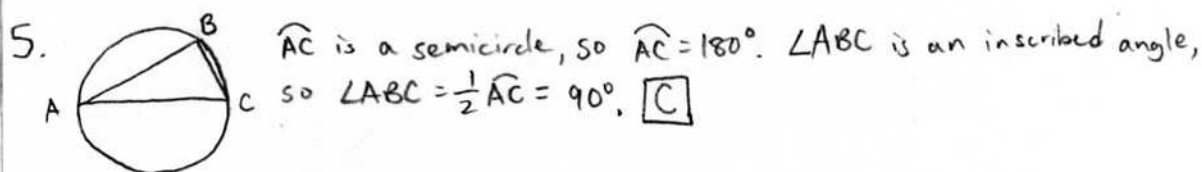 5.
B
A
C
⌢AC is a semicircle, so ⌢AC = 180°. ∠ABC is an inscribed angle,
so ∠ABC = ½ ⌢AC = 90°. C